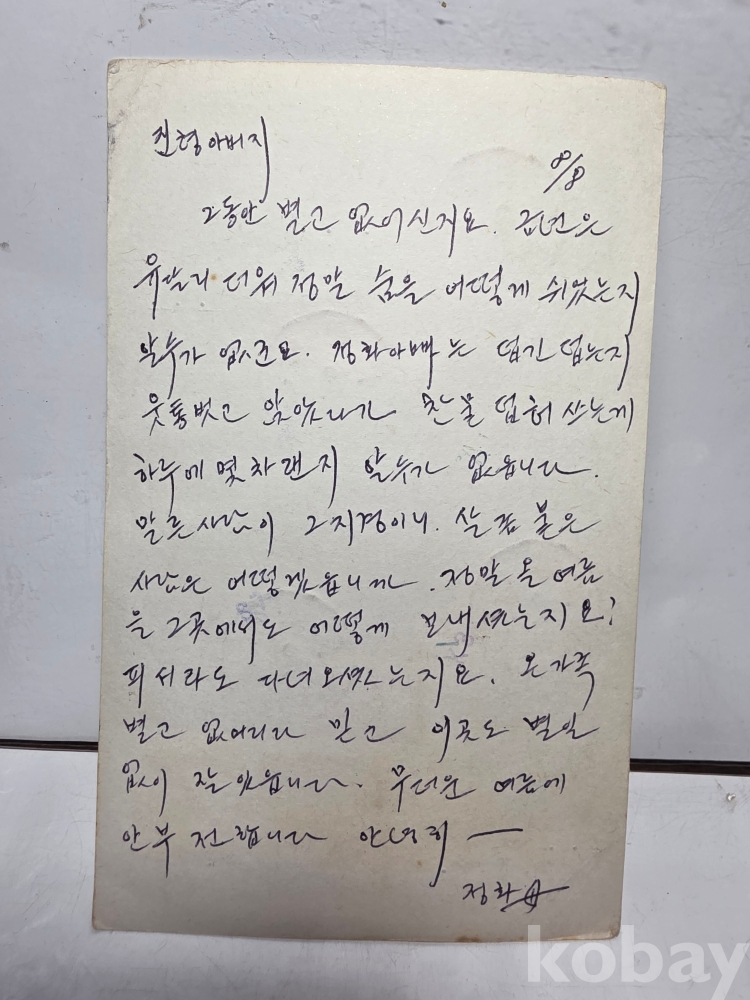 진형아버지
8/8
그동안 별고 없으신지요. 금년은
유달리 더워 정말 숨을 어떻게 쉬었는지
알수가 없군요. 정화아빠는 덥긴 덥는지
웃통벗고 앉았다가 찬물 덥혀 쓰는게
하루에 몇차랜지 알수가 없읍니다.
말른사람이 그지경이니. 살좀 붙은
사람은 어떻겠읍니까. 정말 올 여름
을 그곳에서도 어떻게 보내셨는지요?
피서라도 다녀오셨는지요. 온가족
별고 없으리라 믿고 이곳도 별일
없이 잘있읍니다. 무더운 여름에
안부 전합니다 안녕히 —
정화母
kobay